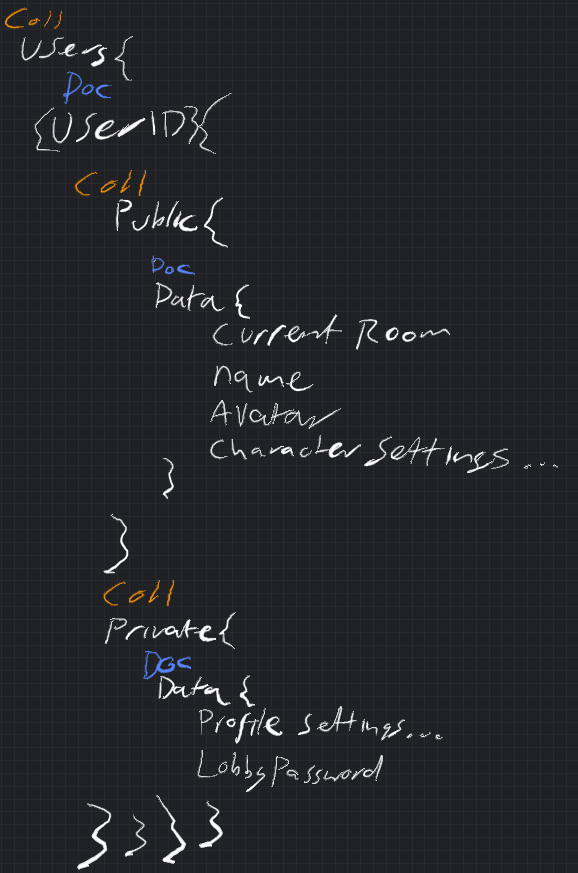 Coll
Users{
Doc
{UserID}{
Coll
Public{
Doc
Data{
Current Room
name
Avatar
Character Settings...
}
}
Coll
Private{
Doc
Data{
Profile settings...
LobbyPassword
}}}}